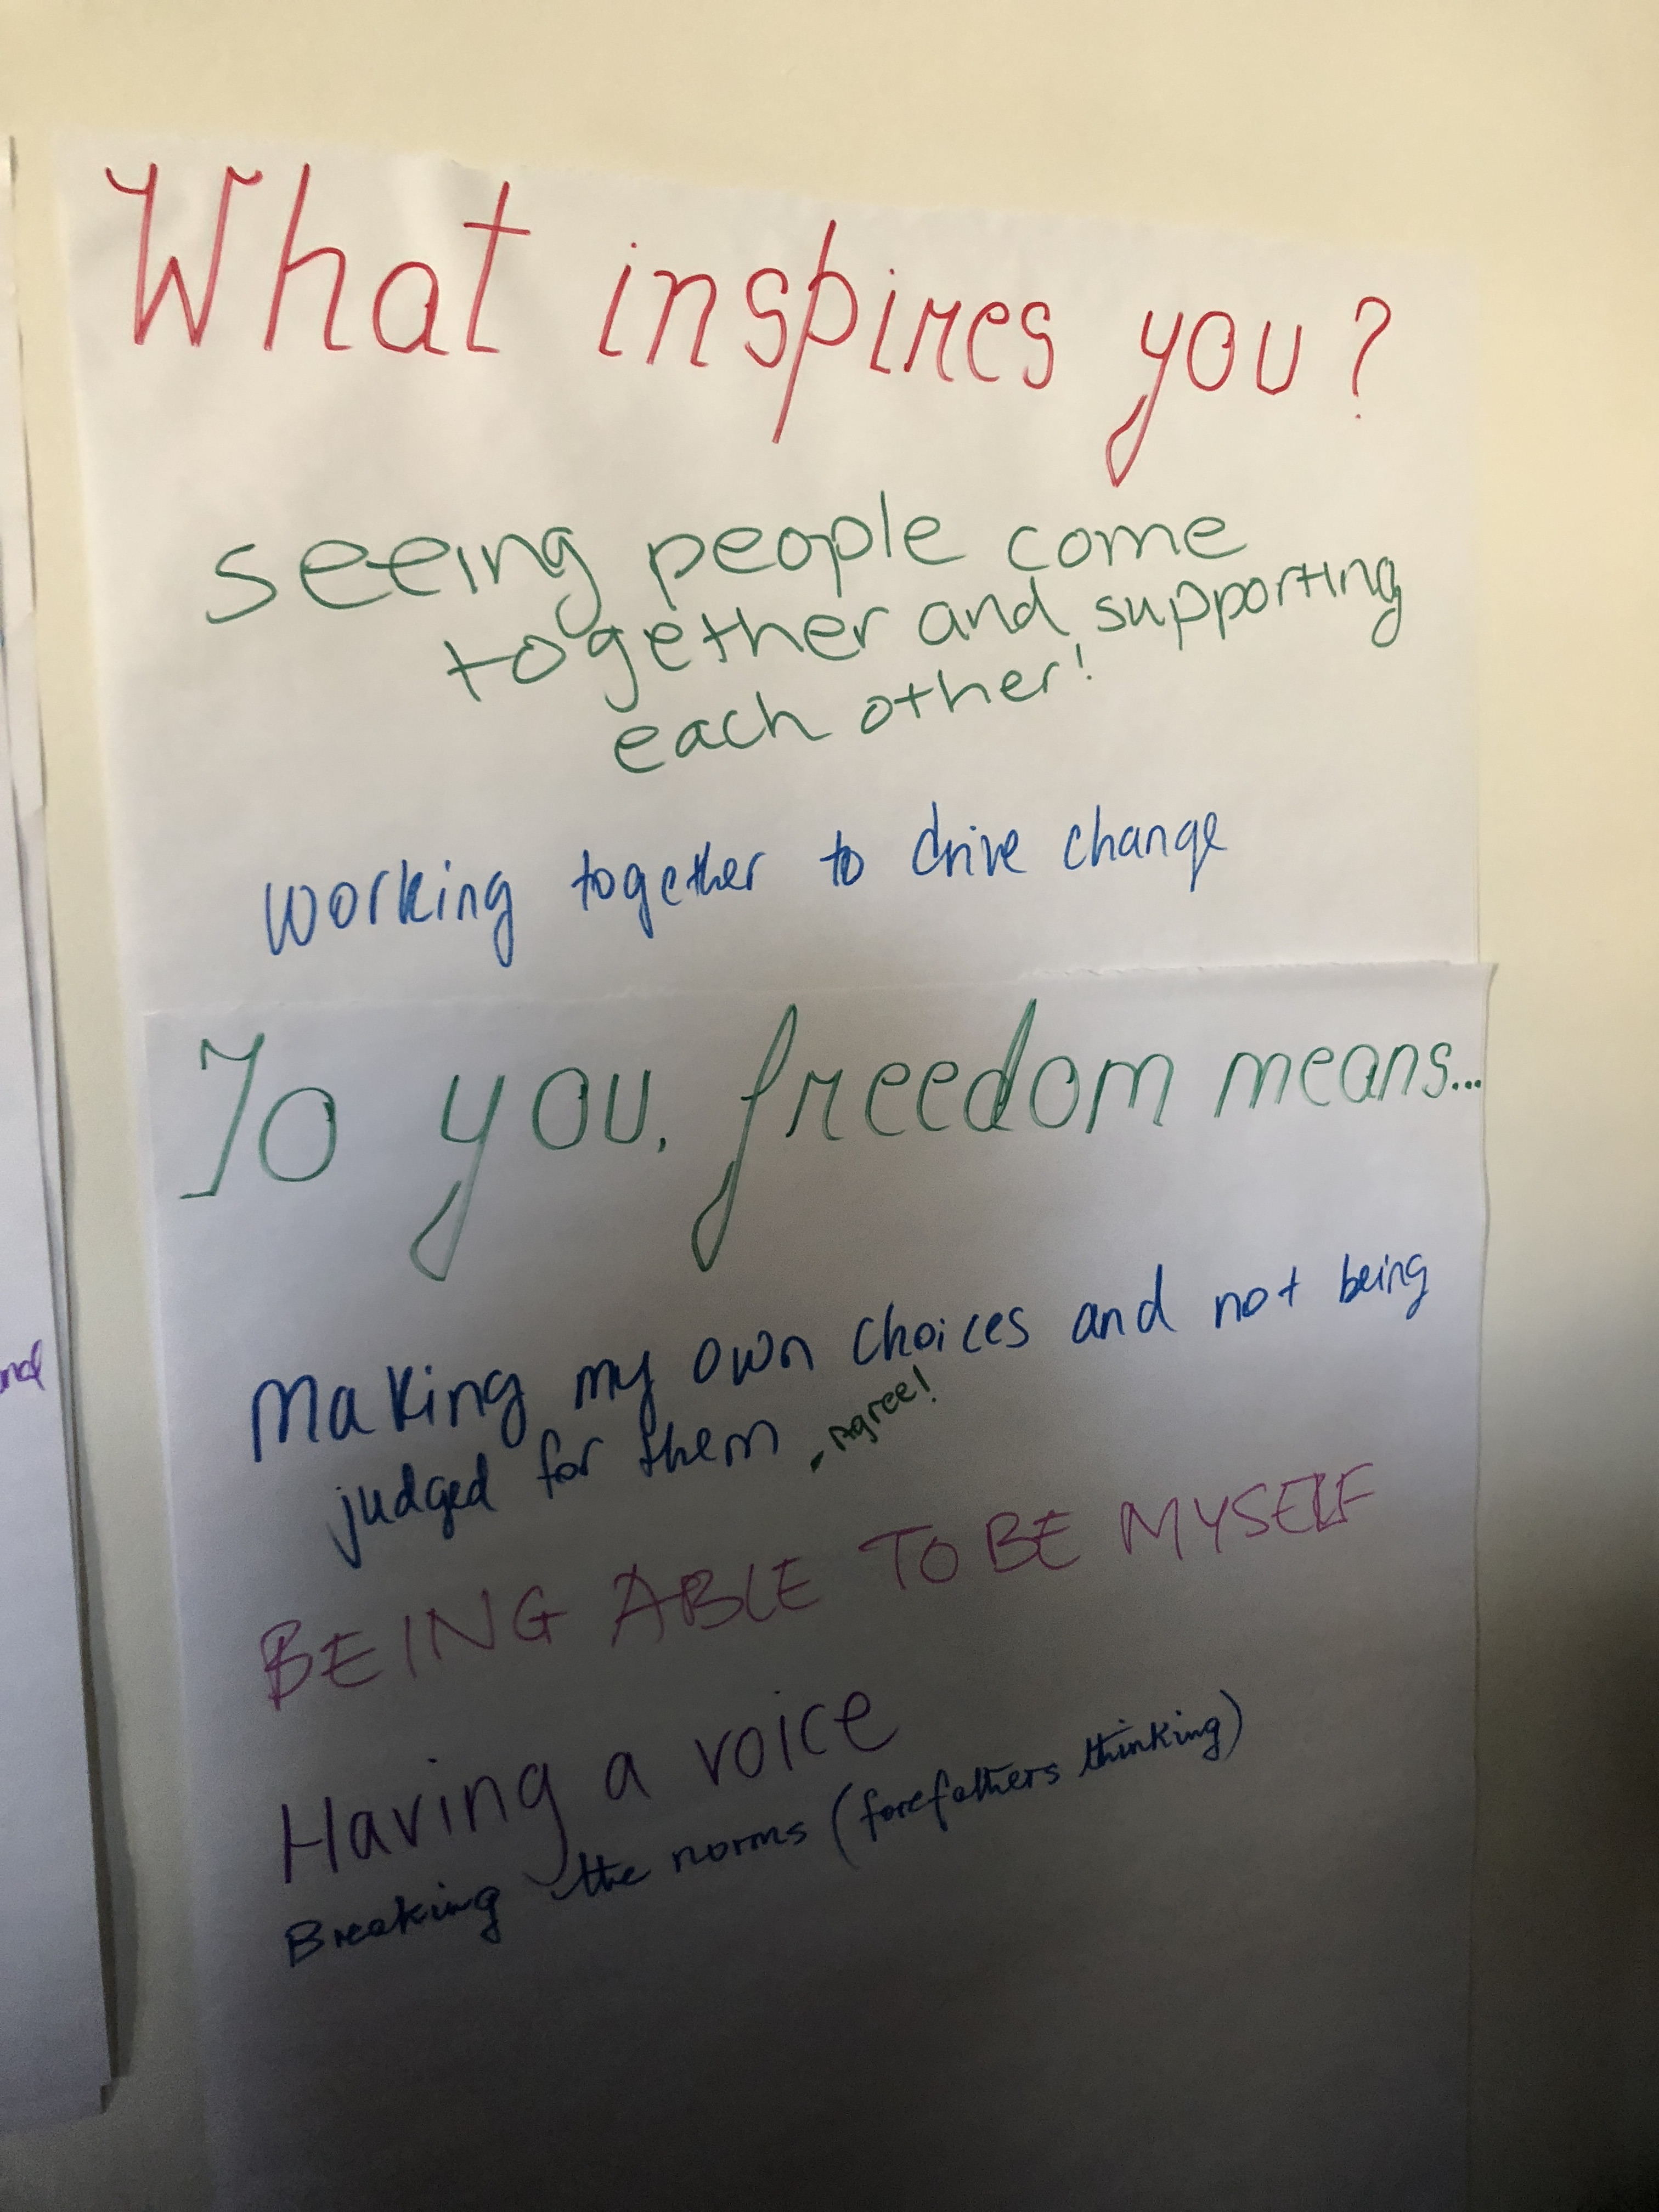 What inspires you?
seeing people come
together and supporting
each other!
working together to drive change
To you, freedom means...
Making my own choices and not being
judged for them , Agree!
BEING ABLE TO BE MYSELF
Having a voice
Breaking the norms (forefathers thinking)